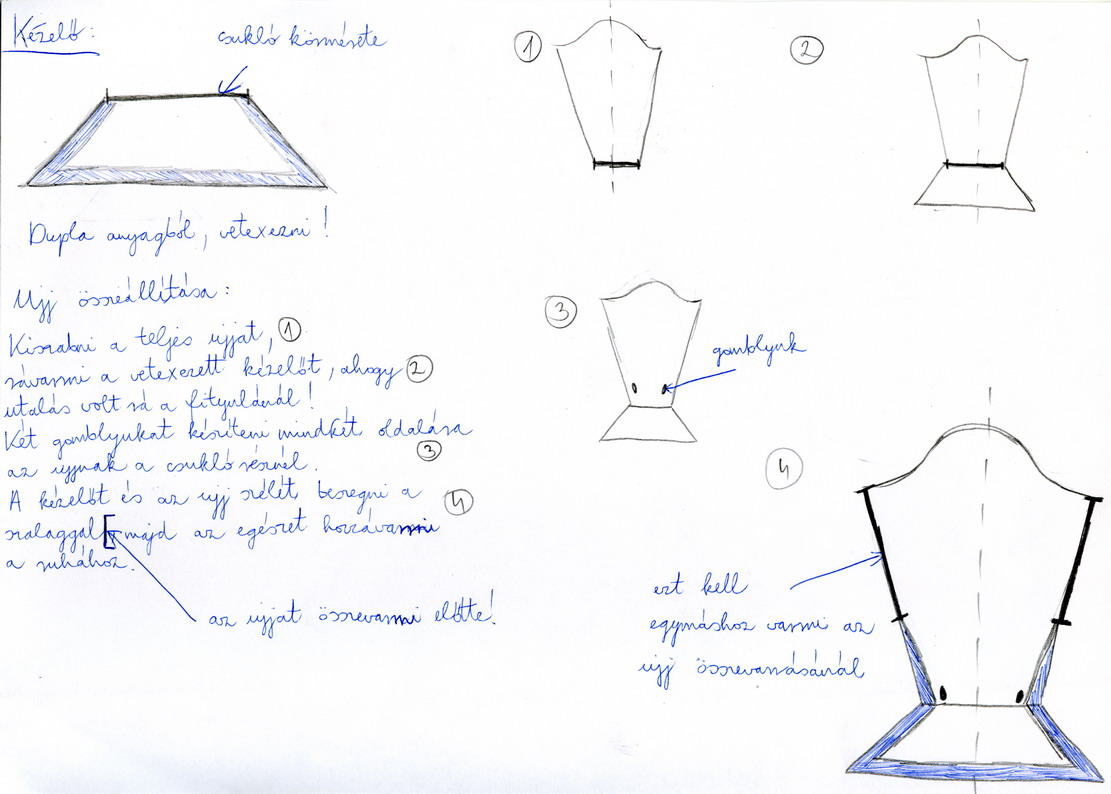 Kézelő:
csukló körmérete
Dupla anyagból, vetexezni!
Ujj összeállítása:
Kiszabni a teljes ujját, 1
rávarrni a vetexezett kézelőt, ahogy 2
utalás volt rá a fityulánál!
Két gomblyukat készíteni mindkét oldalára
az ujjnak a csukló résznél. 3
A kézelőt és az ujj szélét beszegni a 4
szalaggal [ majd az egészet hozzávarrni
a ruhához.
az ujját összevarrni előtte!
1
2
3
gomblyuk
4
ezt kell
egymáshoz varrni az
ujj összevarrásánál